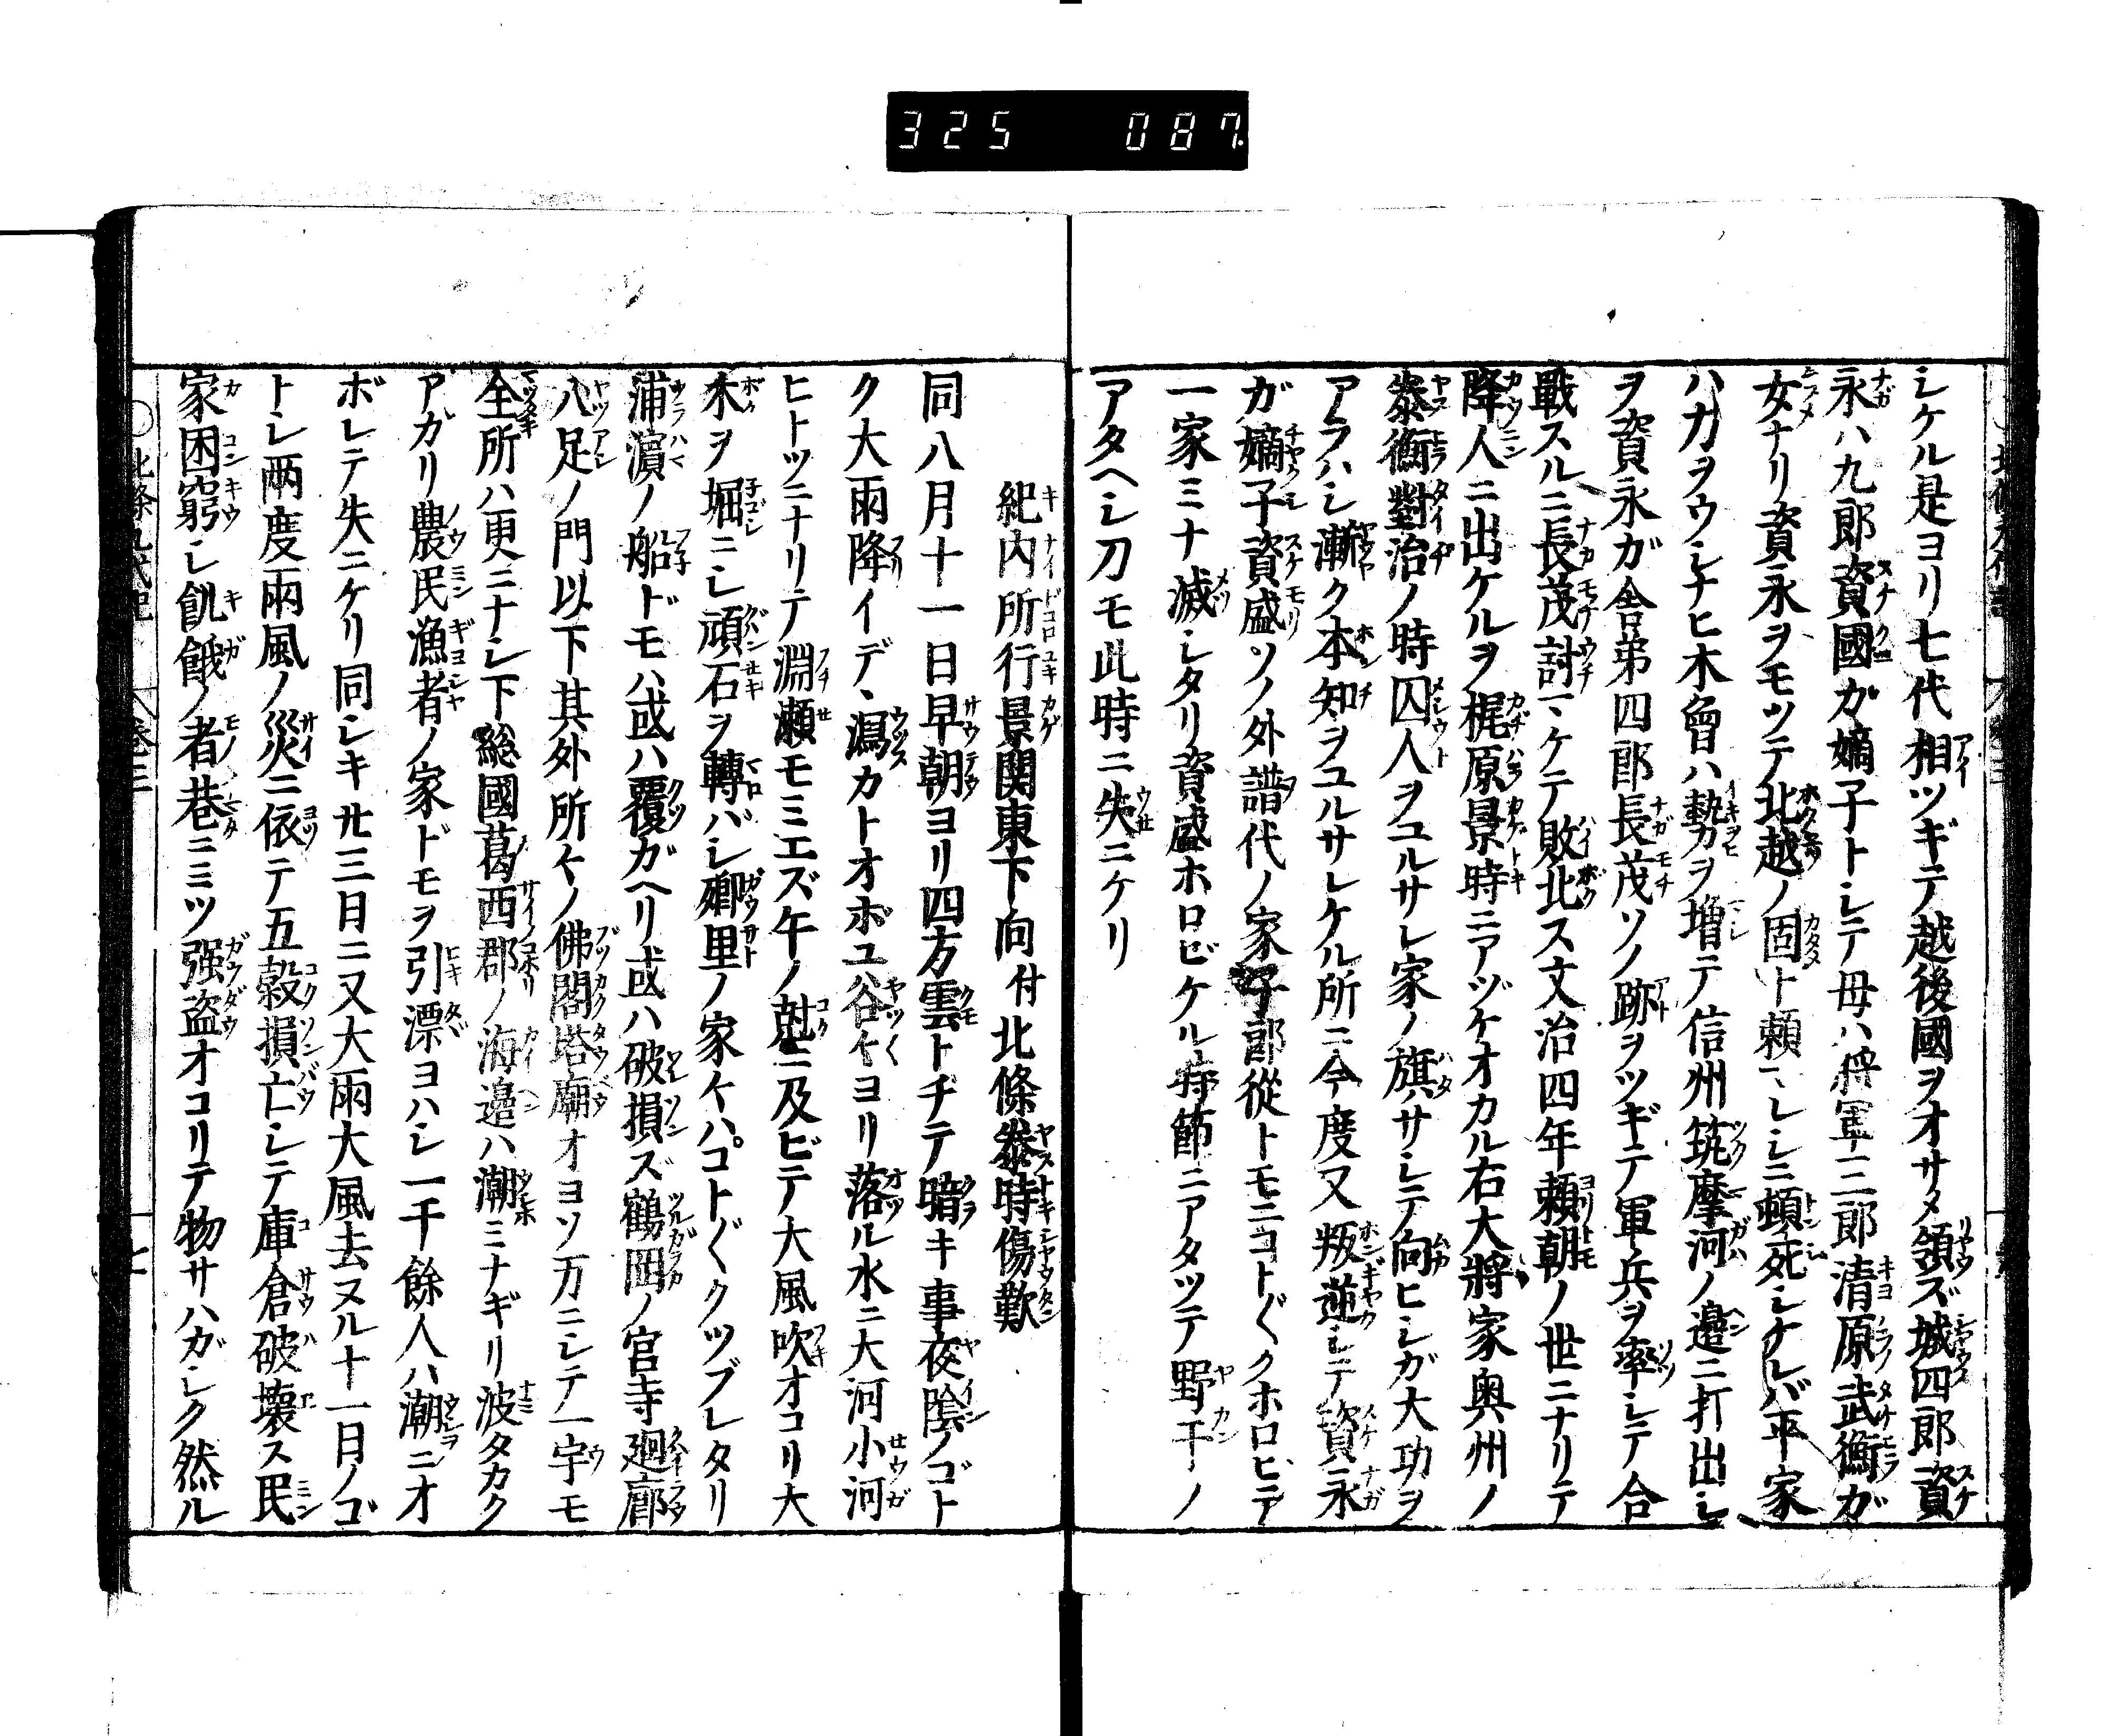 325 087
シケル是ヨリ七代相ツギテ越後國ヲオサメ領ズ城四郎資
永ハ九郎資國ガ嫡子トシテ母ハ将軍三郎清原武衡ガ
女ナリ資永ヲモツテ北越ノ固ト頼マレシニ頓死シケレバ平家
ハ力ヲウシナヒ木曾ハ勢ヲ増テ信州筑摩河ノ邉ニ打出シ
ヲ資永ガ舎弟四郎長茂ソノ跡ヲツギテ軍兵ヲ率シテ合
戰スルニ長茂討マケテ敗北ス文治四年頼朝ノ世ニナリテ
降人ニ出ケルヲ梶原景時ニアヅケオカル右大將家奥州ノ
泰衡對治ノ時囚人ヲユルサレ家ノ旗ハサシテ向ヒシガ大功ヲ
アラハシ漸ク本知ヲユルサレケル所ニ今度又叛逆シテ資永
ガ嫡子資盛ソノ外譜代ノ家子郎從トモニコト〴〵クホロビテ
一家ミナ滅シタリ資盛ホロビケル時節ニアタツテ野干ノ
アタヘシ刀モ此時ニ失ニケリ
紀内所行景関東下向付北條泰時傷歎
同八月十一日早朝ヨリ四方雲トヂテ暗キ事夜陰ノゴト
ク大雨降イデ、瀉カトオボユ谷々ヨリ落ル水ニ大河小河
ヒトツニナリテ淵瀬モミエズ午ノ尅ニ及ビテ大風吹オコリ大
木ヲ堀ニシ頑石ヲ轉バシ郷里ノ家々ハコト〴〵クツブレタリ
浦濵ノ船ドモハ或ハ覆ガヘリ或ハ破損ズ鶴岡ノ官寺廻廊
八足ノ門以下其外所々ノ佛閣塔廟オヨソ万ニシテ一宇モ
全所ハ更ニナシ下総國葛西郡ノ海邉ハ潮ミナギリ波タカク
アガリ農民漁者ノ家ドモヲ引漂ヨハシ一千餘人ハ潮ニオ
ボレテ失ニケリ同シキ廿三日ニ又大雨大風去ヌル十一日ノゴ
トシ兩度雨風ノ災ニ依テ五穀損亡シテ庫倉破壊ス民
家困窮シ飢餓ノ者巷ニミツ强盗オコリテ物サハガシク然ル